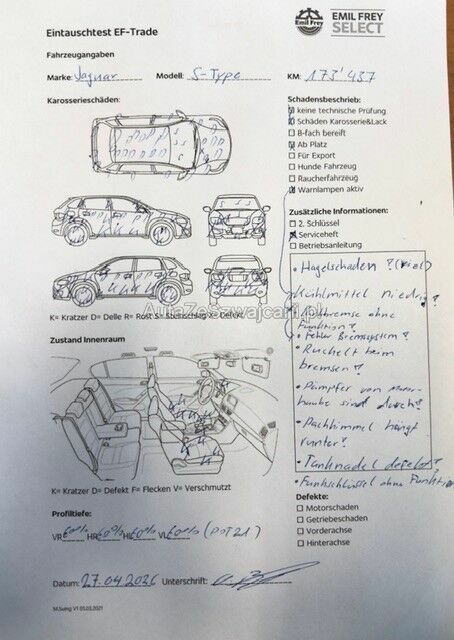 Eintauschtest EF-Trade
Emil Frey
EMIL FREY
SELECT
Fahrzeugangaben
Marke: Jaguar Modell: S-Type KM: 173'437
Karosserieschäden:
Schadensbeschrieb:
keine technische Prüfung
Schäden Karosserie&Lack
8-fach bereift
Ab Platz
Für Export
Hunde Fahrzeug
Raucherfahrzeug
Warnlampen aktiv
Zusätzliche Informationen:
2. Schlüssel
Serviceheft
Betriebsanleitung
K= Kratzer D= Delle R= Rost S= Steinschlag X= Defekt
• Hagelschaden? (viel)
Kühlmittel niedrig?
bremse ohne
Funktion?
• Fehler Bremssystem?
• Ruckelt beim
bremsen?
• Dämpfer von Motor-
haube sind durch?
• Dachhimmel hängt
runter?
• Tanknadel defekt?
• Funkschlüssel ohne Funktion
Zustand Innenraum
K= Kratzer D= Defekt F= Flecken V= Verschmutzt
Profiltiefe:
VR 60% HR 60% HL 60% VL 60% (DOT21)
Defekte:
Motorschaden
Getriebeschaden
Vorderachse
Hinterachse
Datum: 27.04.2026 Unterschrift:
M.Suing V1 05.03.2021
AutaZeSzwajcarii.pl